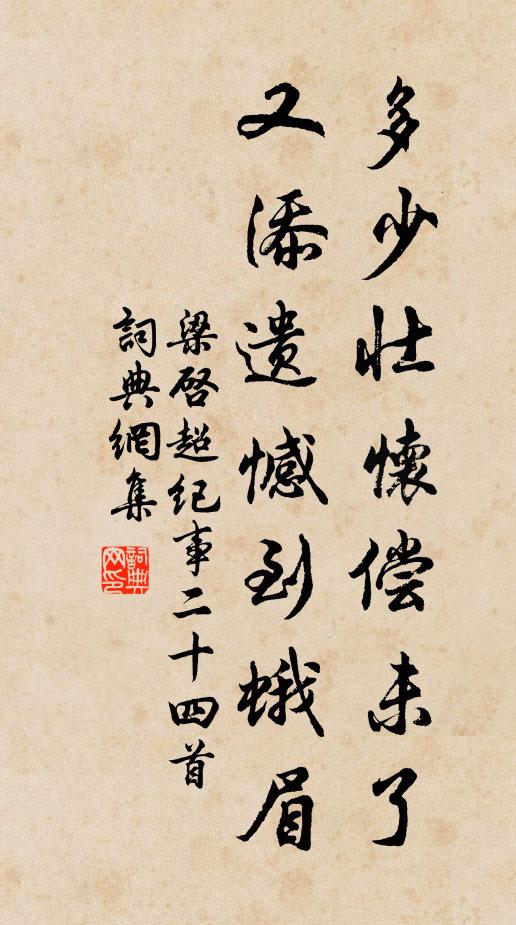 多少壮懷偿未了
又添遗憾到蛾眉
梁啓超纪事二十四首
詞典網集
詞典網印